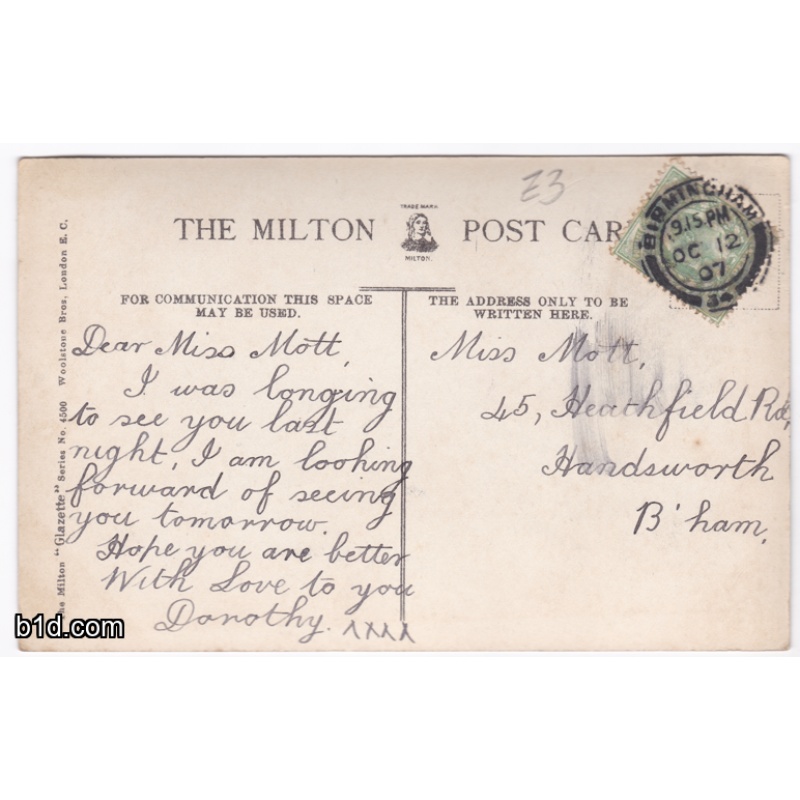 E3
THE MILTON POST CAR
TRADE MARK
MILTON.
BIRMINGHAM
9.15 PM
OC 12
07
34
FOR COMMUNICATION THIS SPACE
MAY BE USED.
THE ADDRESS ONLY TO BE
WRITTEN HERE.
Dear Miss Mott,
I was longing
to see you last
night, I am looking
forward of seeing
you tomorrow.
Hope you are better
With Love to you
Dorothy. xxxx
Miss Mott,
45, Heathfield Rd,
Handsworth
B'ham,
he Milton "Glazette" Series No. 4500 Woolstone Bros, London E. C.
b1d.com